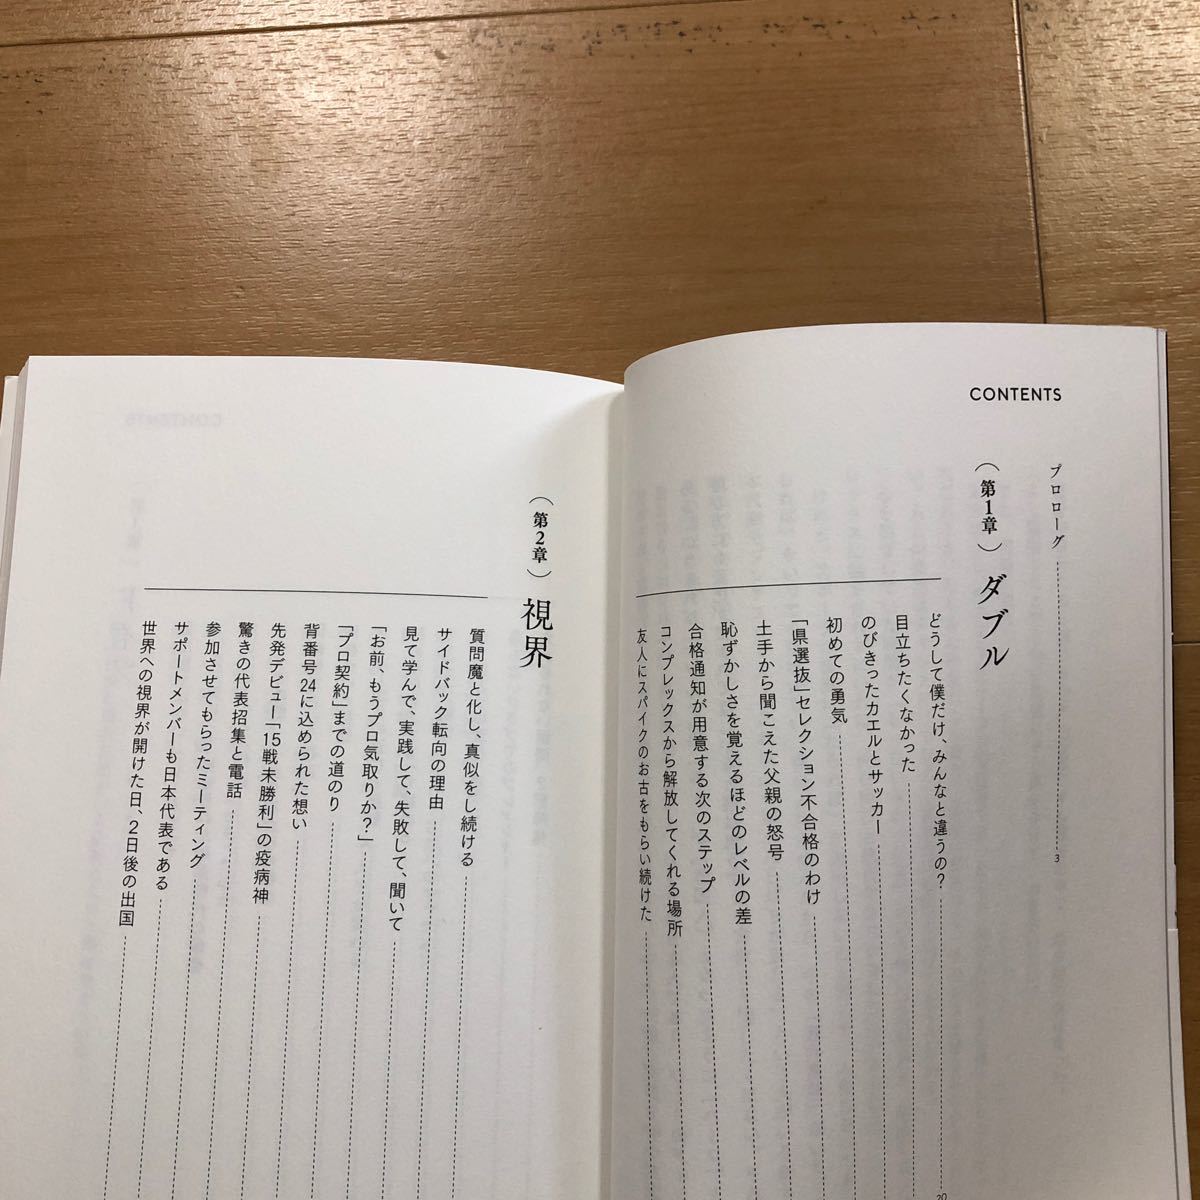 CONTENTS
プロローグ 3
（第1章）ダブル
どうして僕だけ、みんなと違うの？ 20
目立ちたくなかった
のびきったカエルとサッカー
初めての勇気
「県選抜」セレクション不合格のわけ
土手から聞こえた父親の怒号
恥ずかしさを覚えるほどのレベルの差
合格通知が用意する次のステップ
コンプレックスから解放してくれる場所
友人にスパイクのお古をもらい続けた
（第2章）視界
質問魔と化し、真似をし続ける
サイドバック転向の理由
見て学んで、実践して、失敗して、聞いて
「お前、もうプロ気取りか？」
「プロ契約」までの道のり
背番号24に込められた想い
先発デビュー「15戦未勝利」の疫病神
驚きの代表招集と電話
参加させてもらったミーティング
サポートメンバーも日本代表である
世界への視界が開けた日、2日後の出国